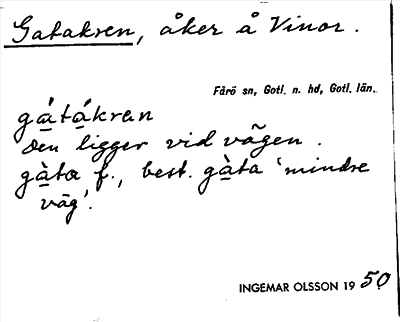 Gatakren, åker å Vinor.
Fårö sn, Gotl. n. hd, Gotl. län.
gátákran
Den ligger vid vägen.
gàta f., best. gàta 'mindre
väg'.
INGEMAR OLSSON 1950